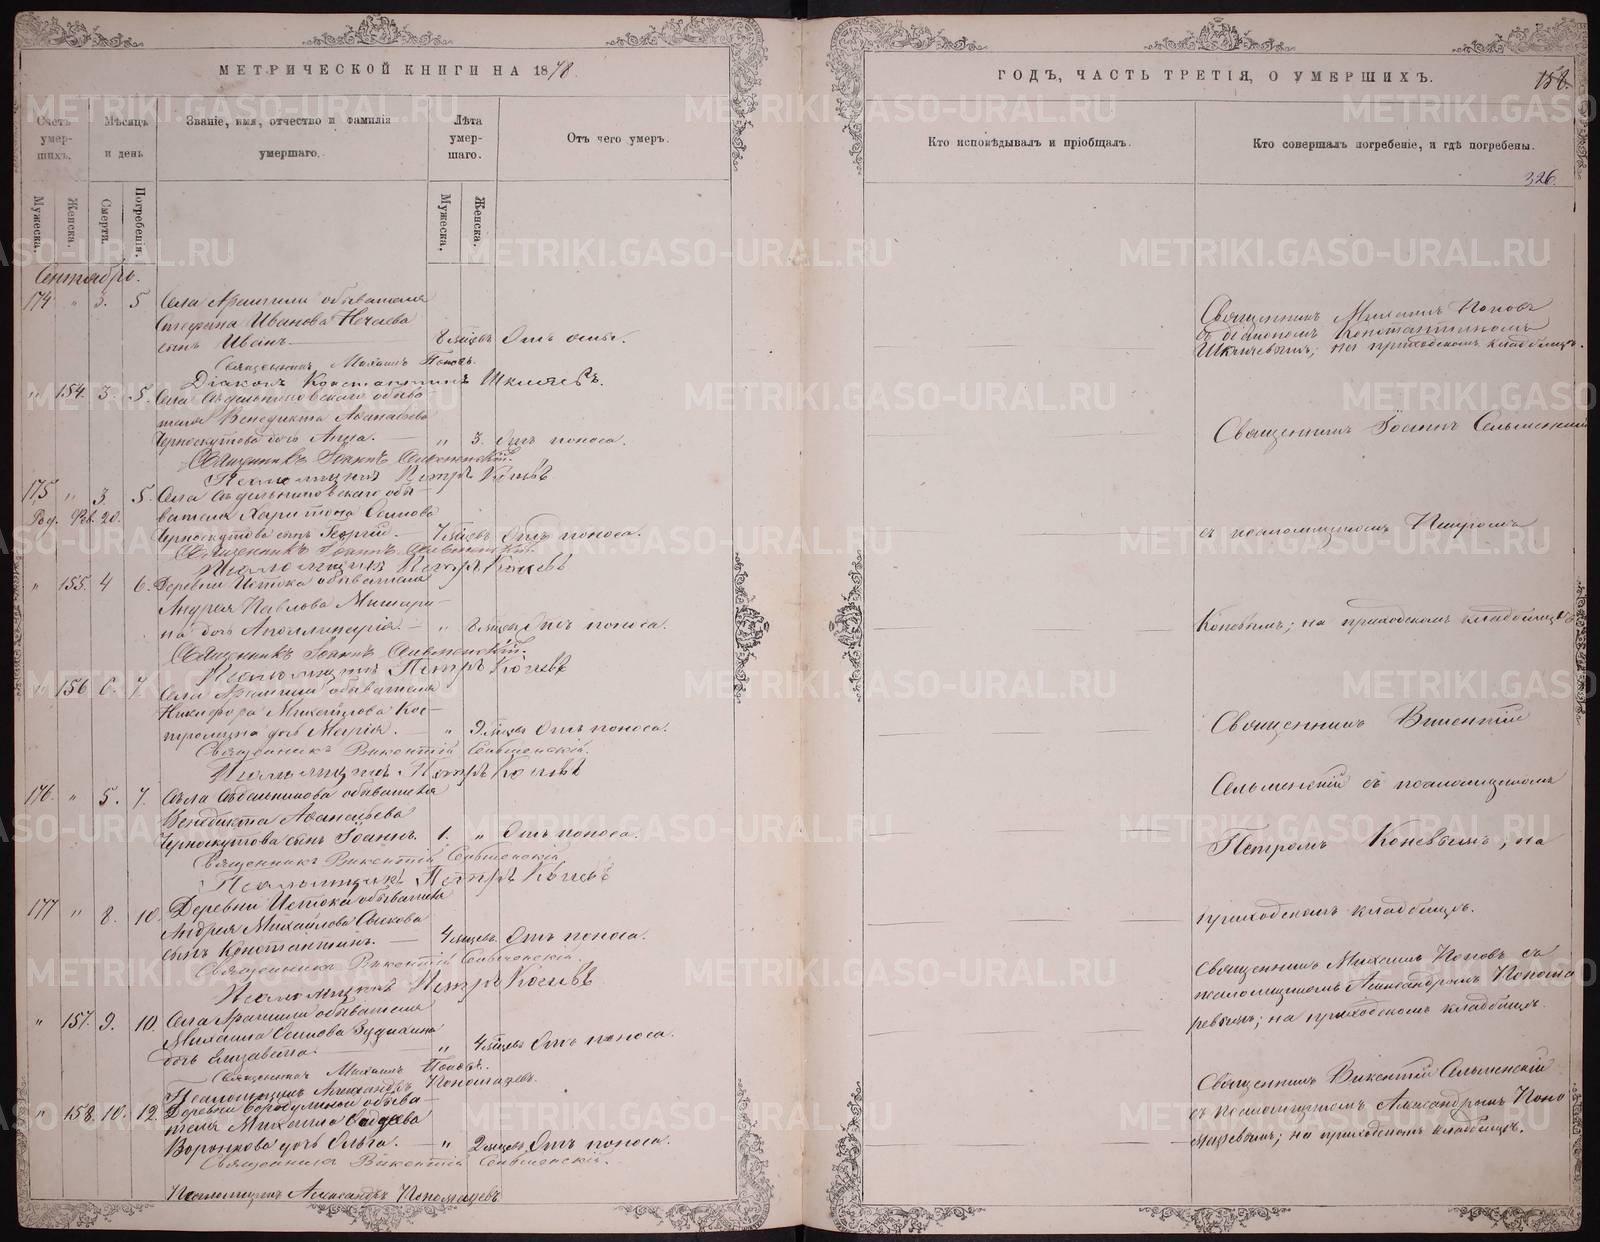 МЕТРИЧЕСКОЙ КНИГИ НА 1878.
Счетъ умер-шихъ.
Мѣсяцъ и день
Званіе, имя, отчество и фамилія умершаго.
Лѣта умер-шаго.
Отъ чего умеръ.
Мужеска.
Женска.
Смерти.
Погребенія.
Мужеска.
Женска.
Сентябрь.
174 " 3. 5 Села Арамили обывателя
Стефана Иванова Нечаева
сынъ Иванъ 8 мѣсяцевъ Отъ оспы.
Священникъ Михаилъ Поповъ.
Діаконъ Константинъ Шкляевъ.
" 154. 3. 5. Села Сѣдельниковскаго обыва
теля Венедикта Аѳанасьева
Черноскутова дочь Анна. " 3. Отъ поноса.
Священникъ Іоаннъ Сельменскій.
Псаломщикъ Петръ Коневъ
175 " 3 5. Села Сѣдельниковскаго обы-
Род. Фев. 20. вателя Харитона Осипова
Черноскутова сынъ Георгій. 7 мѣсяцевъ Отъ поноса.
Священникъ Іоаннъ Сельменскій.
Псаломщикъ Петръ Коневъ
" 155. 4 6. Деревни Истока обывателя
Андрея Павлова
на дочь Аполлинарія. " 8 мѣсяцевъ Отъ поноса.
Священникъ Іоаннъ Сельменскій.
Псаломщикъ Петръ Коневъ
" 156 6. 7. Села Арамили обывателя
Никифора Михайлова Кос-
тромина дочь Марія. " 2 мѣсяцевъ Отъ поноса.
Священникъ Викентій Сельменскій.
Псаломщикъ Петръ Коневъ
176. " 5. 7. Села Сѣдельникова обывателя
Венедикта Аѳанасьева
Черноскутова сынъ Іоаннъ. 1. " Отъ поноса.
Священникъ Викентій Сельменскій
Псаломщикъ Петръ Коневъ
177 " 8. 10. Деревни Истока обывателя
Андрея Михайлова
сынъ Константинъ. 4 мѣсяцевъ. Отъ поноса.
Священникъ Викентій Сельменскій.
Псаломщикъ Петръ Коневъ
" 157. 9. 10. Села Арамили обывателя
Михаила Осипова
дочь Елизавета. " 4 мѣсяцевъ Отъ поноса.
Священникъ Михаилъ Поповъ.
Псаломщикъ Александръ Пономаревъ.
" 158. 10. 12. Деревни Бородулиной обыва-
теля Михаила
Воронкова дочь Ольга. " 2 мѣсяцевъ Отъ поноса.
Священникъ Викентій Сельменскій.
Псаломщикъ Александръ Пономаревъ
ГОДЪ, ЧАСТЬ ТРЕТІЯ, О УМЕРШИХЪ.
158.
Кто исповѣдывалъ и пріобщалъ.
Кто совершалъ погребеніе, и гдѣ погребены.
326.
Священникъ Михаилъ Поповъ
съ діакономъ Константиномъ
Шкляевымъ; на приходскомъ кладбищѣ.
Священникъ Іоаннъ Сельменскій
съ псаломщикомъ Петромъ
Коневымъ; на приходскомъ кладбищѣ
Священникъ Викентій
Сельменскій съ псаломщикомъ
Петромъ Коневымъ; на
приходскомъ кладбищѣ.
Священникъ Михаилъ Поповъ съ
псаломщикомъ Александромъ Понома
ревымъ; на приходскомъ кладбищѣ.
Священникъ Викентій Сельменскій
съ псаломщикомъ Александромъ Поно
маревымъ; на приходскомъ кладбищѣ.
METRIKI.GASO-URAL.RU